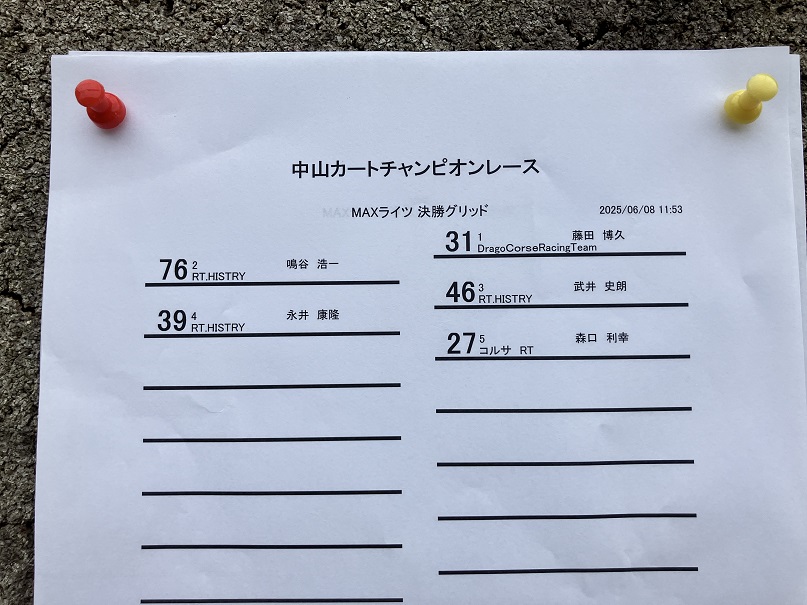 中山カートチャンピオンレース
MAXライツ 決勝グリッド 2025/06/08 11:53
31 1 藤田 博久
DragoCorseRacingTeam
76 2 鳴谷 浩一
RT.HISTRY
46 3 武井 史朗
RT.HISTRY
39 4 永井 康隆
RT.HISTRY
27 5 森口 利幸
コルサ RT